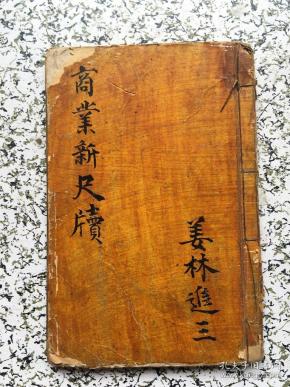 商業新尺牘
姜林進三